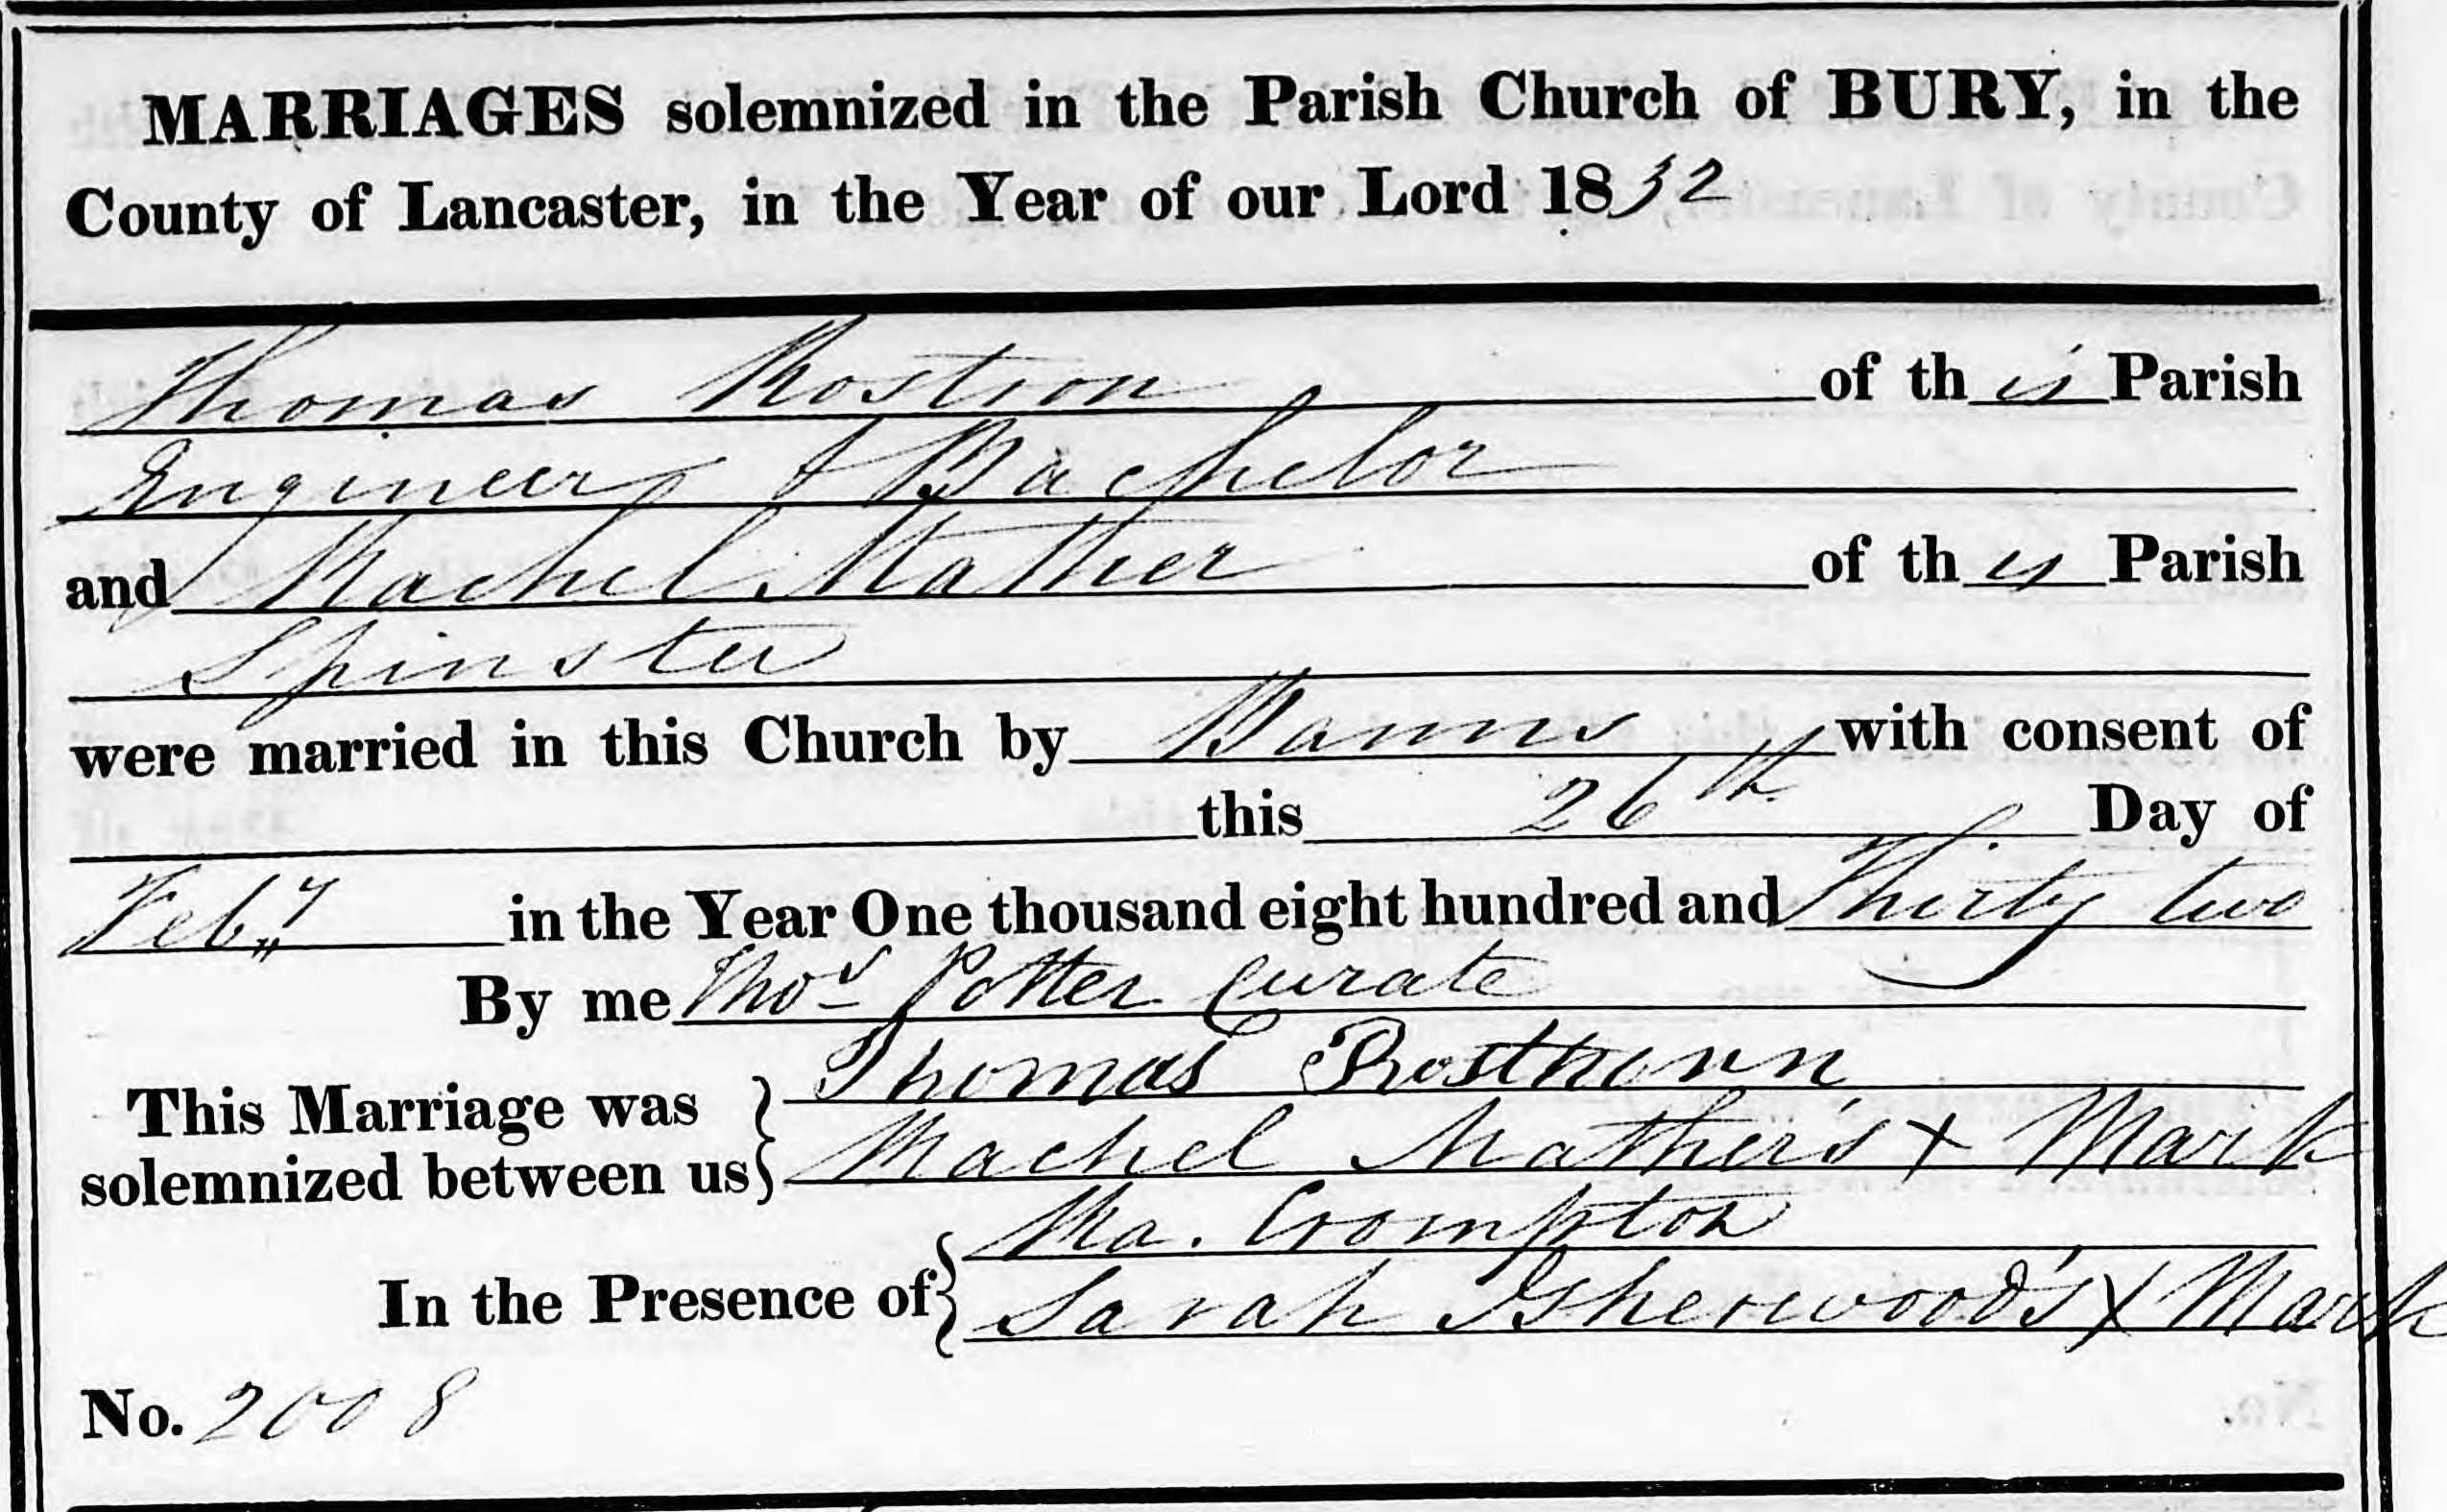 MARRIAGES solemnized in the Parish Church of BURY, in the
County of Lancaster, in the Year of our Lord 1832
Thomas Rostron of this Parish
Engineer & Bachelor
and Rachel Mather of this Parish
Spinster
were married in this Church by Banns with consent of
this 26th Day of
Feby in the Year One thousand eight hundred and Thirty two
By me Thos Potter Curate
This Marriage was solemnized between us
Thomas Rosthorn
Rachel Mather's X Mark
In the Presence of
Ra. Crompton
Sarah Isherwood's X Mark
No. 2008